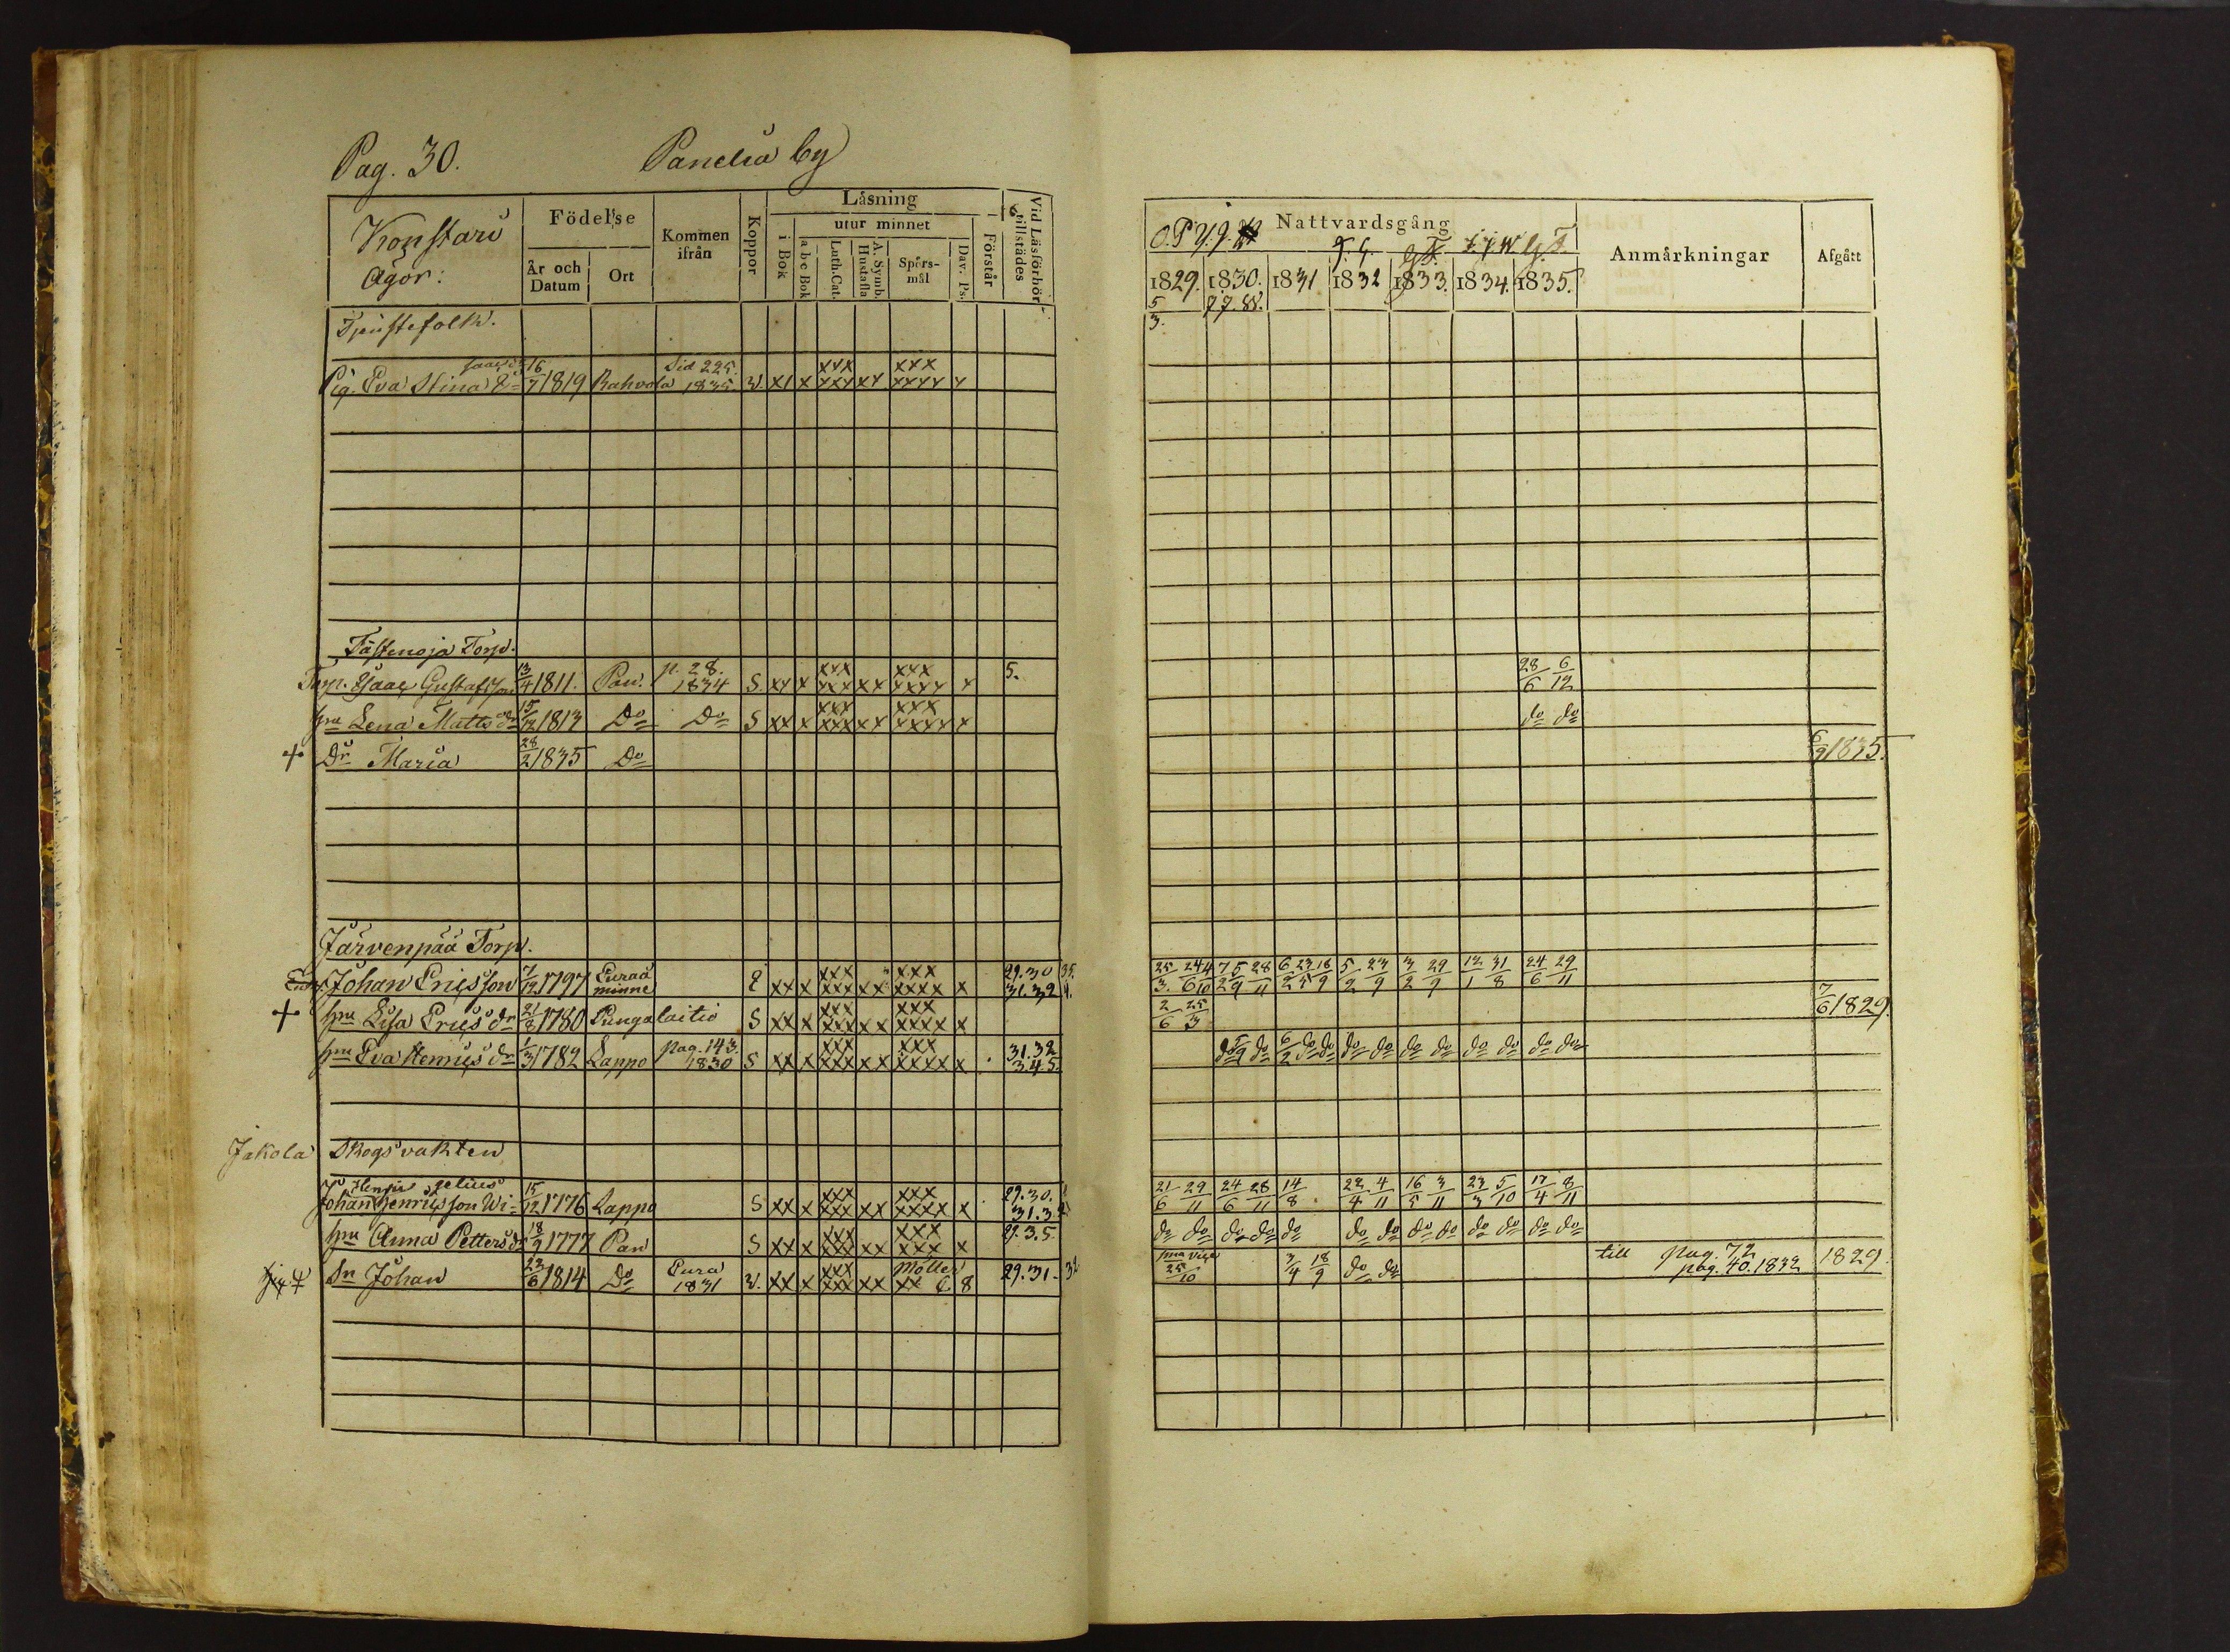 Pag. 30. Panelia by
Konstari
ägor:
Födelse
År och Datum
Ort
Kommen ifrån
Koppor
Läsning
i Bok
utur minnet
a b c Bok
Luth. Cat.
A. Symb. Hustafla
Spörs-mål
Dav. Ps.
Förstår
Vid Läsförhör tillstädes
Tjenstefolk.
Pig. Eva Stina 16/7 1819 Rahvola Sid 225. 1835. v. xx x xxx xxx xx xxx xxxx x
Torp.
Torp. Isaac Gustafsson 13/4 1811. Pan. p. 28. 1834 S. xx x xxx xxx xx xxx xxxx x 5.
hu Lena Matts dr 15/12 1813 Do Do S xx x xxx xxx xx xxx xxxx x
+ Dr Maria 28/2 1835 Do
Järvenpää Torp.
Johan Ericsson 7/12 1797 Euraåminne xx x xxx xxx xx xxx xxxx x 29.30 31.32 35.
+ hu Lisa Erics dr 21/8 1780 Pungalaitio S xx x xxx xxx xx xxx xxxx x
hu Eva Henrics dr 1/3 1782 Lappo pag. 143. 1830 S xx x xxx xxx xx xxx xxxx x 31.32 3.4.5.
Jakola Skogsvakten
Johan Henricsson 15/12 1776 Lappo S xx x xxx xxx xx xxx xxxx x 29.30. 31.3
hu Anna Petters dr 18/9 1777 Pan S xx x xxx xxx xx xxx xxx x 29.3.5.
Sn Johan 23/6 1814 Do Eura 1831 v. xx x xxx xxx xx xx 6 8 29.31. 32
Nattvardsgång
Anmärkningar
Afgått
1829. 1830. 1831 1832 1833. 1834. 1835.
28/6 6/12
do do
6/9 1835.
25/3 24/6 4/10 7/2 5/9 28/11 6/2 23/5 18/9 5/2 23/9 3/2 29/9 12/1 31/8 24/6 29/11
2/6 25/3 7/6 1829.
do 5/9 do 6/2 do do do do do do do do do do
21/6 29/11 24/6 28/11 14/8 22/4 4/11 16/5 3/11 23/3 5/10 17/4 8/11
do do do do do do do do do do do do do
25/10 3/4 18/9 do do till pag. 72 pag. 40. 1832 1829.